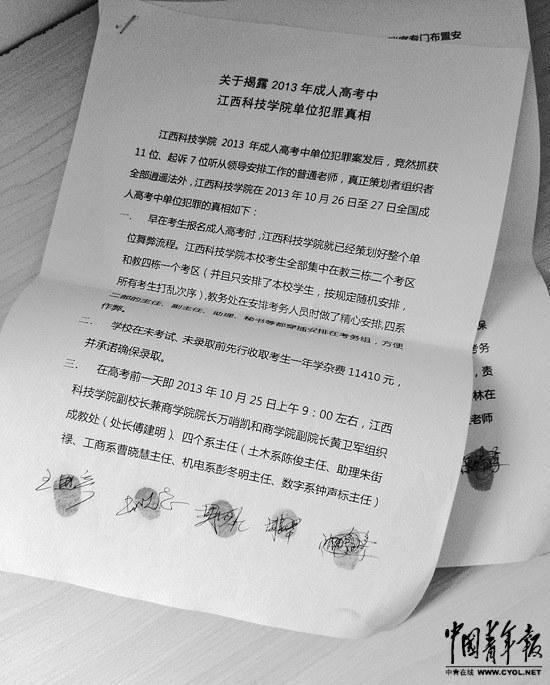 关于揭露2013年成人高考中
江西科技学院单位犯罪真相
江西科技学院2013年成人高考中单位犯罪案发后，竟然抓获
11位、起诉7位听从领导安排工作的普通老师，真正策划者组织者
全部逍遥法外，江西科技学院在2013年10月26日至27日全国成
人高考中单位犯罪的真相如下：
一、早在考生报名成人高考时，江西科技学院就已经策划好整个单
位舞弊流程。江西科技学院本校考生全部集中在教三栋二个考区
和教四栋一个考区（并且只安排了本校学生，按规定随机安排，
所有考生打乱次序），教务处在安排考务人员时做了精心安排，四系
二部的主任、副主任、助理、秘书等都穿插安排在考务组，方便
作弊。
二、学校在未考试、未录取前先行收取考生一年学杂费11410元，
并承诺确保录取。
三、在高考前一天即2013年10月25日上午9：00左右，江西
科技学院副校长兼商学院院长万哨凯和商学院副院长黄卫军组织
成教处（处长傅建明）、四个系主任（土木系陈俊主任、助理朱街
禄、工商系曹晓慧主任、机电系彭冬明主任、数字系钟声标主任）
专门布置安
保
考务
，责
林在
老师
中国青年报
中青在线 WWW.CYOL.NET